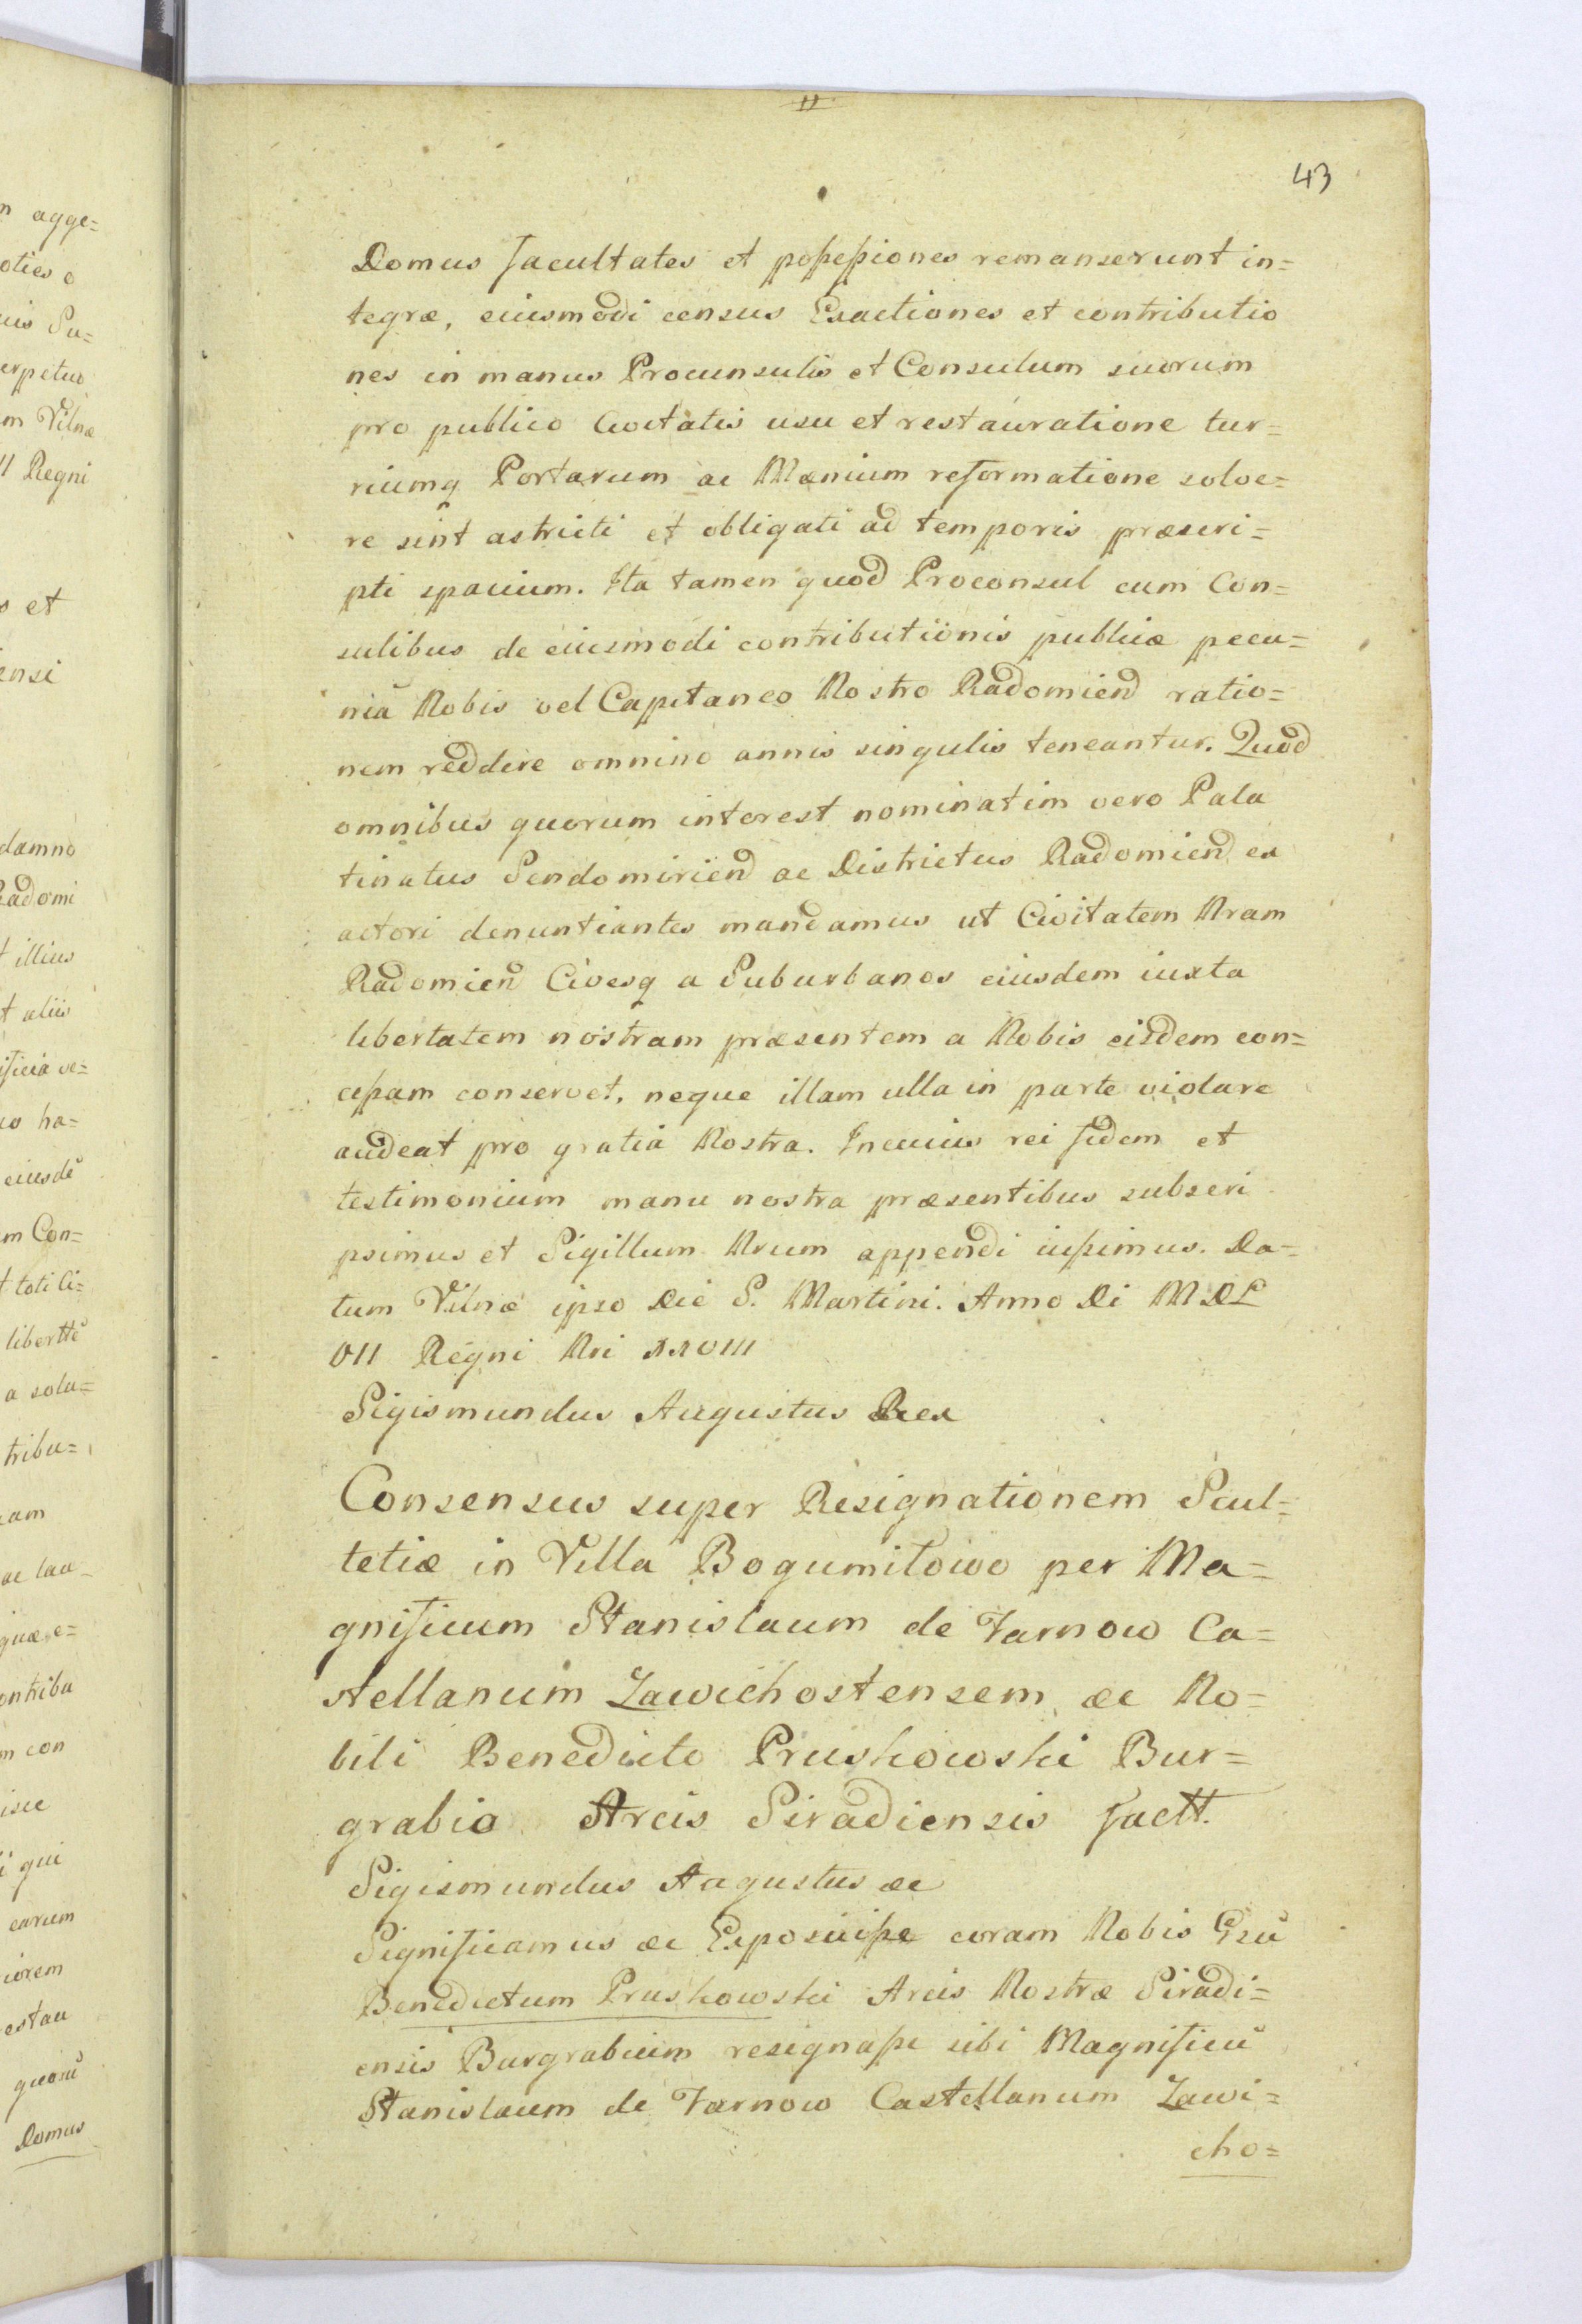 n agge=
oties o
uis Su=
erpetuo
m Vilnæ
II Regni
o et
ensi
damno
Radomi
t illius
t aliis
ificia ve=
uo ha=
eiusdẽ
m Con=
t toti Ci=
liberttẽ
a solu=
tribu=
am
ac lau=
quæ e=
ontribu
m con
isce
i qui
earum
iorem
estau
quorũ
Domus
43
Domus facultates et possessiones remanserunt in=
tegræ, eiusmodi census Exactiones et contributio
nes in manus Procunsulis et Consulum suorum
pro publico Civitatis usu et restauratione tur=
riumq Portarum ac Mænium reformatione solve=
re sint astricti et obligati ad temporis præscri=
pti spacium. Ita tamen quod Proconsul cum Con=
sulibus de eiusmodi contributionis publicæ pecu=
nia Nobis vel Capitaneo Nostro Radomien̄ ratio=
nem reddere omnino annis singulis teneantur. Quod
omnibus quorum interest nominatim vero Pala
tinatus Sendomirien̄ ac Districtus Radomien̄ ex
actori denuntiantes mandamus ut Civitatem Nram
Radomien̄ Civesq a Suburbanos eiusdem iuxta
libertatem nostram præsentem a Nobis eisdem con=
cessam conservet, neque illam ulla in parte violare
audeat pro gratia Nostra. In cuius rei fidem et
testimonium manu nostra præsentibus subscri
psimus et Sigillum Nrum appendi iussimus. Da=
tum Vilnæ ipso Die S. Martini. Anno Di MDL
VII Regni Nri XXVIII
Sigismundus Augustus Rex
Consensus super Resignationem Scul=
tetiæ in Villa Bogumiłowo per Ma=
gnificum Stanislaum de Tarnow Ca=
stellanum Zawichostensem ac No=
bili Benedicto Pruskowski Bur=
grabio Arcis Siradiensis factt.
Sigismundus Augustus ac
Significamus ac Exposuisse coram Nobis Gsũ
Benedictum Pruskowski Arcis Nostræ Siradi=
ensis Burgrabium resignasse sibi Magnificũ
Stanislaum de Tarnow Castellanum Zawi=
cho=